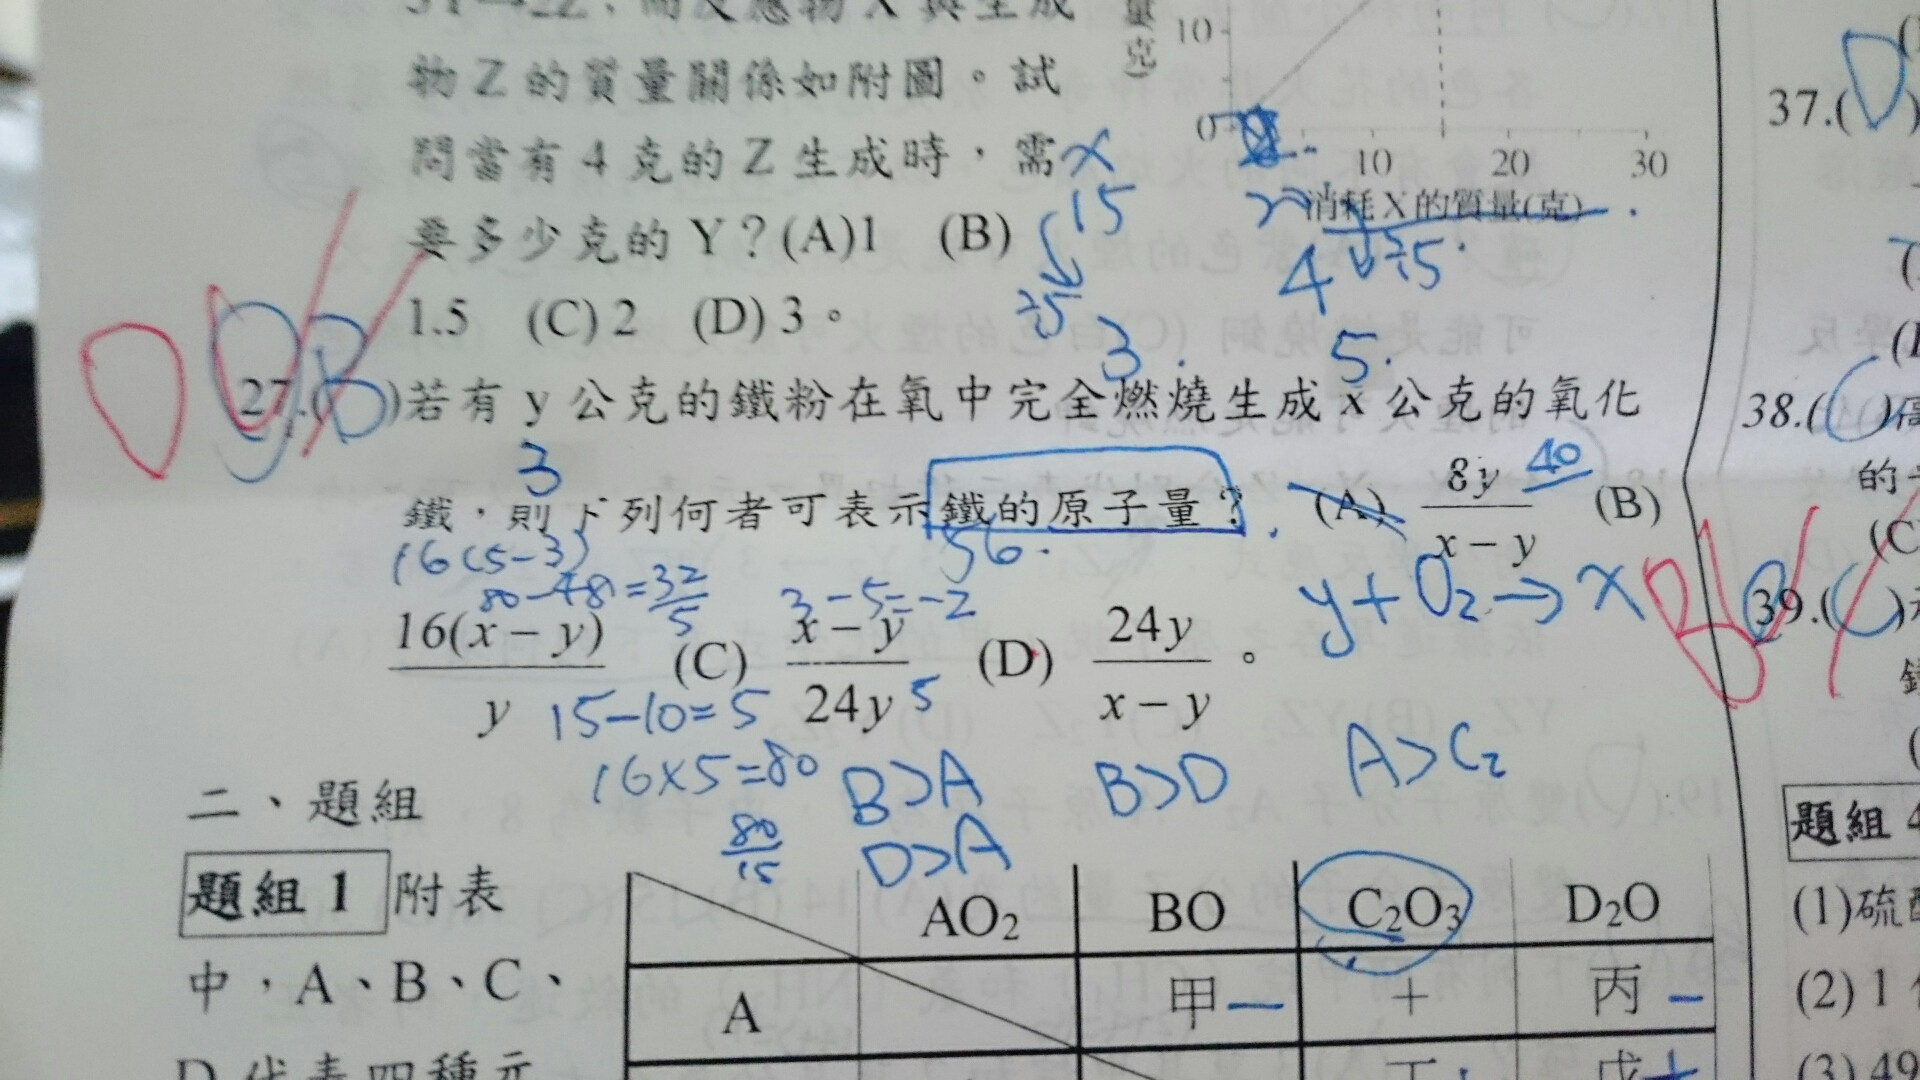 物Z的質量關係如附圖。試
問當有4克的Z生成時,需
要多少克的Y?(A)1 (B)
1.5 (C)2 (D)3。
量
克)
10
0
10 20 30
消耗X的質量(克)
x
15
÷5
3.
4
÷5
5.
27.( )若有y公克的鐵粉在氧中完全燃燒生成x公克的氧化
3
鐵,則下列何者可表示鐵的原子量? (A) 8y/(x-y) (B)
40
56.
16(5-3)
80-48=32/5
3-5=-2
y+O₂→x
16(x-y)/y (C) (x-y)/24y (D) 24y/(x-y)。
5
15-10=5
16×5=80
80/15
B>A B>D A>C₂
D>A
二、題組
題組1 附表
中,A、B、C、
D代表四種元
AO₂ BO C₂O₃ D₂O
A 甲 — + 丙 —
37.( )
38.( )
的
(C
39.( )
學反
題組4
(1)硫
(2)1
(3)49